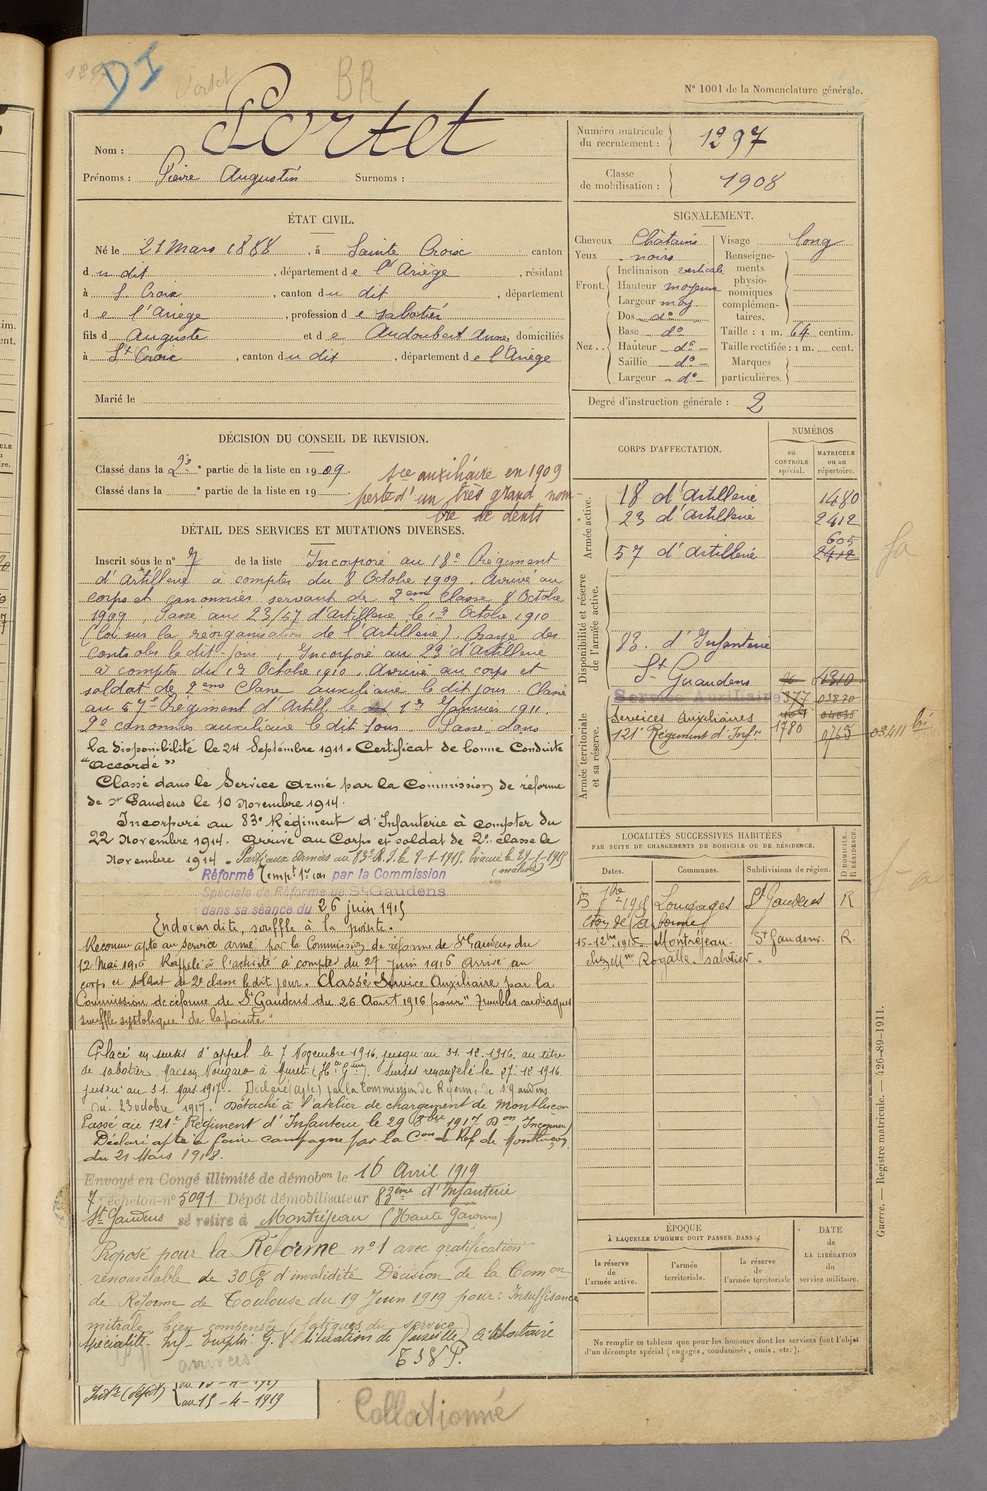 DI
BR
N° 1001 de la Nomenclature générale.
Nom : Portet
Prénoms : Pierre Augustin Surnoms :
Numéro matricule du recrutement : 1297
Classe de mobilisation : 1908
ÉTAT CIVIL.
Né le 21 Mars 1888, à Sainte Croix canton
du dit, département de l'Ariège, résidant
à S. Croix, canton du dit, département
de l'Ariège, profession de sabotier
fils d Auguste et de Audoubert Anne, domiciliés
à St Croix, canton du dit, département de l'Ariège
Marié le
SIGNALEMENT.
Cheveux Châtains
Yeux noirs
Front. Inclinaison verticale
Hauteur moyenne
Largeur moy
Nez.. Dos do
Base do
Hauteur do
Saillie do
Largeur do
Visage long
Renseignements physionomiques complémentaires.
Taille : 1 m. 64 centim.
Taille rectifiée : 1 m. cent.
Marques particulières.
Degré d'instruction générale : 2
DÉCISION DU CONSEIL DE REVISION.
Classé dans la 2e partie de la liste en 1909.
Classé dans la partie de la liste en 19
sce auxiliaire en 1909
perte d'un très grand nom-
bre de dents
DÉTAIL DES SERVICES ET MUTATIONS DIVERSES.
Inscrit sous le n° 7 de la liste Incorporé au 18e Régiment
d'Artillerie à compter du 8 Octobre 1909. Arrivé au
corps et canonnier servant de 2eme Classe 8 Octobre
1909. Passé au 23/57 d'Artillerie, le 1er Octobre 1910
(Loi sur la reorganisation de l'Artillerie). Rayé des
controles le dit jour. Incorporé au 23 d'Artillerie
à compter du 1er Octobre 1910. Arrivé au corps et
soldat de 2eme Classe auxiliaire le dit jour. Classé
au 57e Régiment d'Artill. le 1er Janvier 1911.
2e canonnier auxiliaire le dit jour. Passé dans
la disponibilité le 24 Septembre 1911. Certificat de bonne Conduite
"Accordé"
Classé dans le Service Armé par la Commission de réforme
de St Gaudens le 10 Novembre 1914.
Incorporé au 83e Régiment d'Infanterie à compter du
22 Novembre 1914. Arrivé au Corps et soldat de 2e classe le
Novembre 1914.
Réformé par la Commission
Spéciale de Réforme de St Gaudens
dans sa séance du 26 juin 1915
Endocardite, souffle à la pointe.
Reconnu apte au service armé par la Commission de réforme de St Gaudens du
12 Mai 1916 Rappelé à l'activité à compter du 29 Juin 1916 arrivé au
corps et soldat de 2e classe le dit jour. Classé Service Auxiliaire par la
Commission de réforme de St Gaudens du 26 Aout 1916 pour "Troubles cardiaques
souffle systolique de la pointe"
Placé en sursis d'appel le 7 Novembre 1916 jusqu'au 31.12.1916. au titre
de sabotier, Maison Nougaro à Muret (Hte Gne). Sursis renouvelé le 27.12.1916
jusqu'au 31 Mars 1917. Déclaré par la Commission de Réforme de St Gaudens
du 23 octobre 1917. Détaché à l'atelier de chargement de Montluçon
Passé au 121e Régiment d'Infanterie le 29 8bre 1917
Déclaré apte à faire campagne par la Con de Ref de Montluçon
du 21 Mars 1918.
Envoyé en Congé illimité de démobon le 16 Avril 1919
7e échelon n° 5091 Dépôt démobilisateur 83eme d'Infanterie
St Gaudens se retire à Montréjeau (Haute Garonne)
Proposé pour la Réforme n° 1 avec gratification
renouvelable de 30 % d'invalidité Décision de la Comon
de Réforme de Toulouse du 19 Juin 1919 pour : Insuffisance
mitrale bien compensée (fatigues du service)
au 15-4-1919
Collationné
CORPS D'AFFECTATION.
NUMÉROS
au CONTRÔLE spécial.
MATRICULE ou au répertoire.
Armée active.
18 d'Artillerie 1480
23 d'Artillerie 2412
605
57 d'Artillerie 2412
Disponibilité et réserve de l'armée active.
83. d'Infanterie
St Gaudens 1310
Service Auxiliaire 377 03870
Armée territoriale et sa réserve.
Services Auxiliaires
121e Régiment d'Infie 1780
03411 bis
LOCALITÉS SUCCESSIVES HABITÉES
PAR SUITE DE CHANGEMENTS DE DOMICILE OU DE RÉSIDENCE.
Dates. Communes. Subdivisions de région. D. DOMICILE. R. RÉSIDENCE.
1915 Louzages St Gaudens R
15-12bre 1915 Montréjeau. St Gaudens. R.
chez Mme Royalle sabotier.
ÉPOQUE
À LAQUELLE L'HOMME DOIT PASSER DANS :
la réserve de l'armée active.
l'armée territoriale.
la réserve de l'armée territoriale
DATE de LA LIBÉRATION du service militaire.
Ne remplir ce tableau que pour les hommes dont les services font l'objet
d'un décompte spécial (engagés, condamnés, omis, etc.).
Guerre. — Registre matricule. — 426-89-1911.